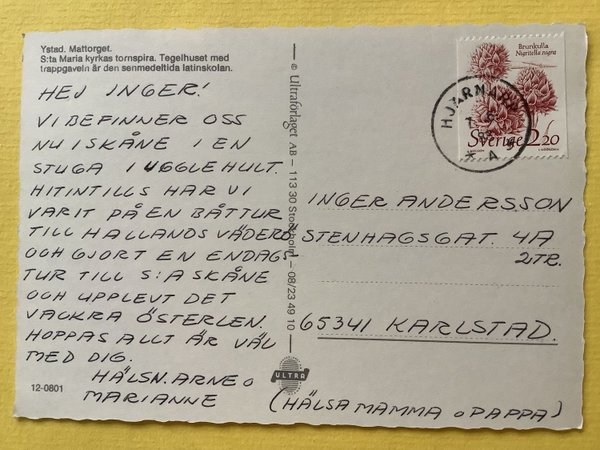 Ystad. Mattorget.
S:ta Maria kyrkas tornspira. Tegelhuset med
trappgaveln är den senmedeltida latinskolan.
HEJ INGER!
VI BEFINNER OSS
NU I SKÅNE I EN
STUGA I UGGLEHULT.
HITINTILLS HAR VI
VARIT PÅ EN BÅTTUR
TILL HALLANDS VÄDERÖ
OCH GJORT EN ENDAGS
TUR TILL S:A SKÅNE
OCH UPPLEVT DET
VACKRA ÖSTERLEN.
HOPPAS ALLT ÄR VÄL
MED DIG.
HÄLSN. ARNE O
MARIANNE
(HÄLSA MAMMA O PAPPA)
12-0801
© Ultraförlaget AB – 113 30 Stockholm – 08/23 49 10
ULTRA
Brunkulla
Nigritella nigra
Sverige 2.20
INGER ANDERSSON
STENHAGSGAT. 4A
2TR.
65341 KARLSTAD.